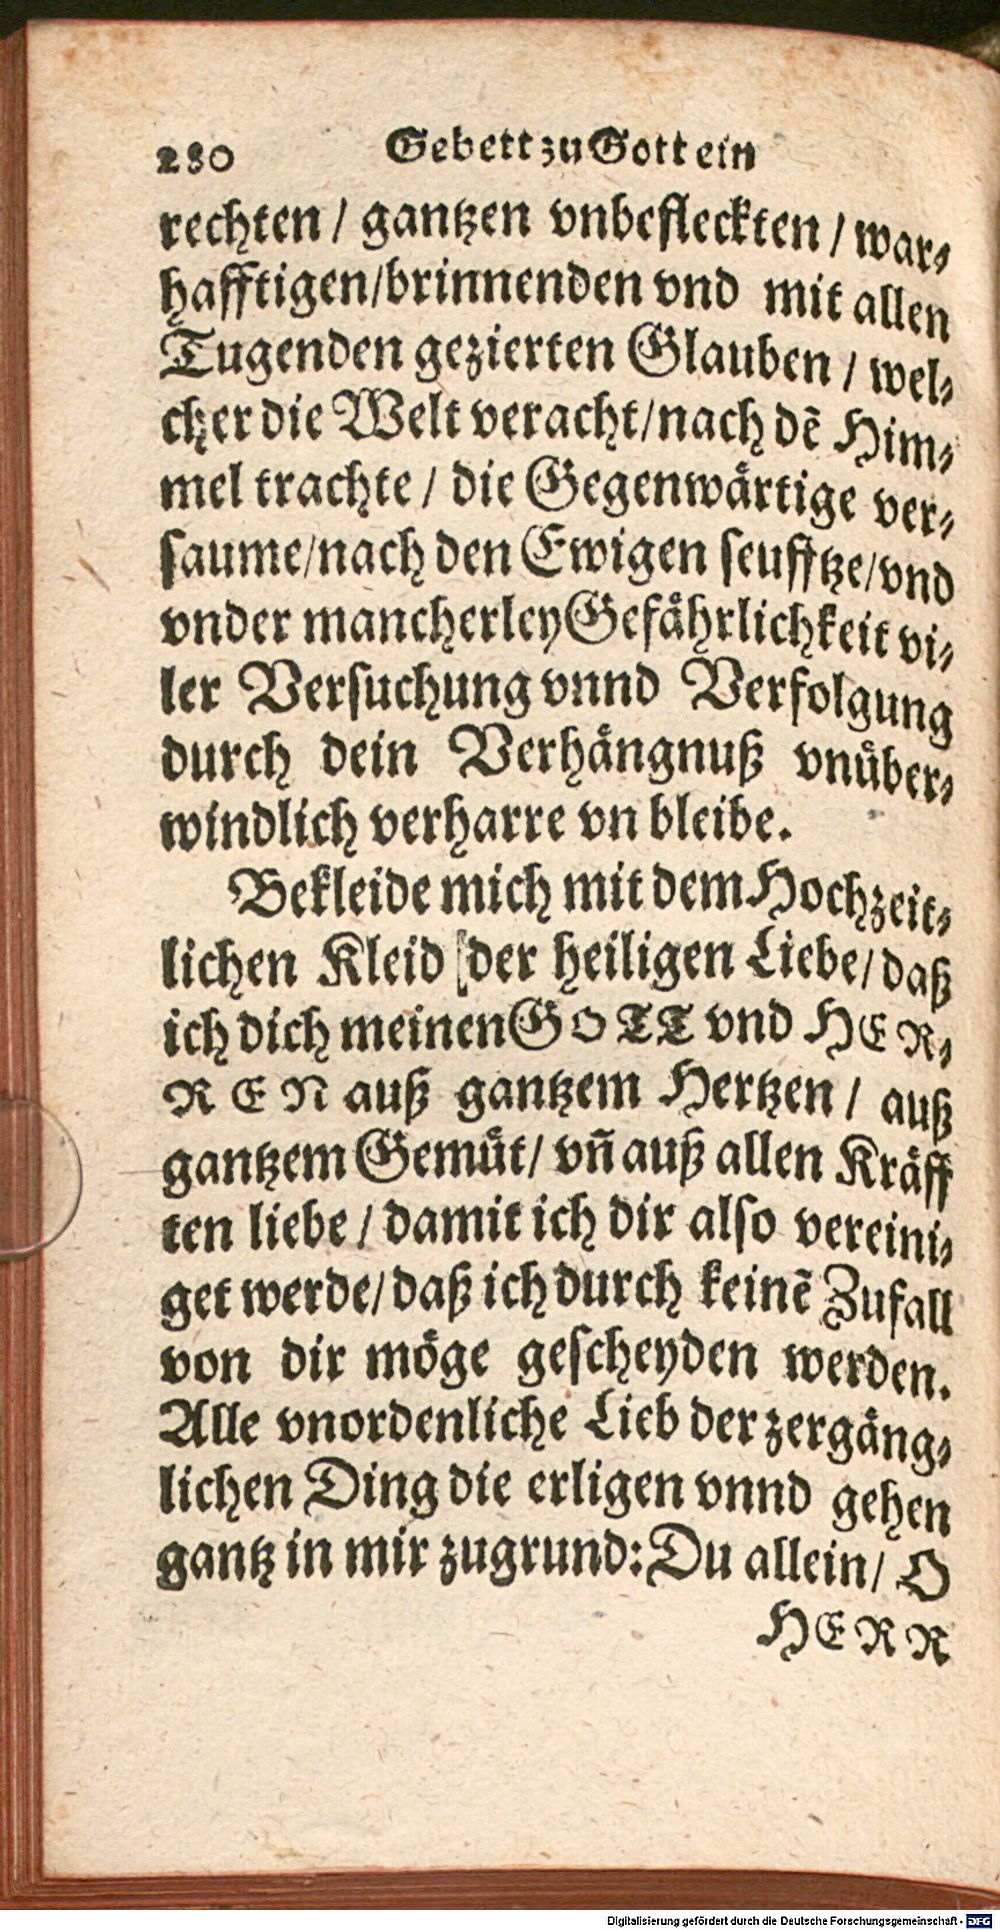 280 Gebett zu Gott ein
rechten / gantzen vnbefleckten / war-
hafftigen/brinnenden vnd mit allen
Tugenden gezierten Glauben / wel-
cher die Welt veracht/nach dẽ Him-
mel trachte / die Gegenwaͤrtige ver-
saume/nach den Ewigen seufftze/vnd
vnder mancherley Gefaͤhrlichkeit vi-
ler Versuchung vnnd Verfolgung
durch dein Verhaͤngnuß vnuͤber-
windlich verharre vn bleibe.
Bekleide mich mit dem Hochzeit-
lichen Kleid der heiligen Liebe/daß
ich dich meinen GOTT vnd HER-
REN auß gantzem Hertzen / auß
gantzem Gemuͤt/ vñ auß allen Kraͤff
ten liebe / damit ich dir also vereini-
get werde/daß ich durch keinẽ Zufall
von dir moͤge gescheyden werden.
Alle vnordenliche Lieb der zergaͤng-
lichen Ding die erligen vnnd gehen
gantz in mir zugrund: Du allein/ O
HERR
Digitalisierung gefördert durch die Deutsche Forschungsgemeinschaft - DFG